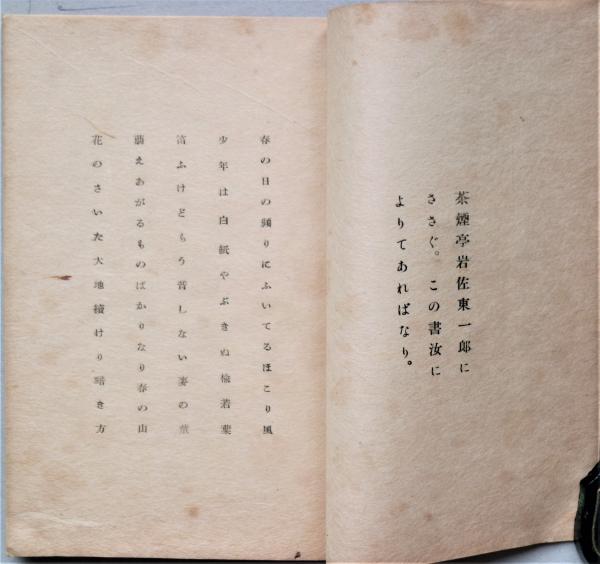 茶煙亭岩佐東一郎に
ささぐ。この書汝に
よりてあればなり。
春の日の頻りにふいてるほこり風
少年は白紙やぶきぬ楡若葉
笛ふけどもう音しない麥の莖
萠えあがるものばかりなり春の山
花のさいた大地續けり暗き方